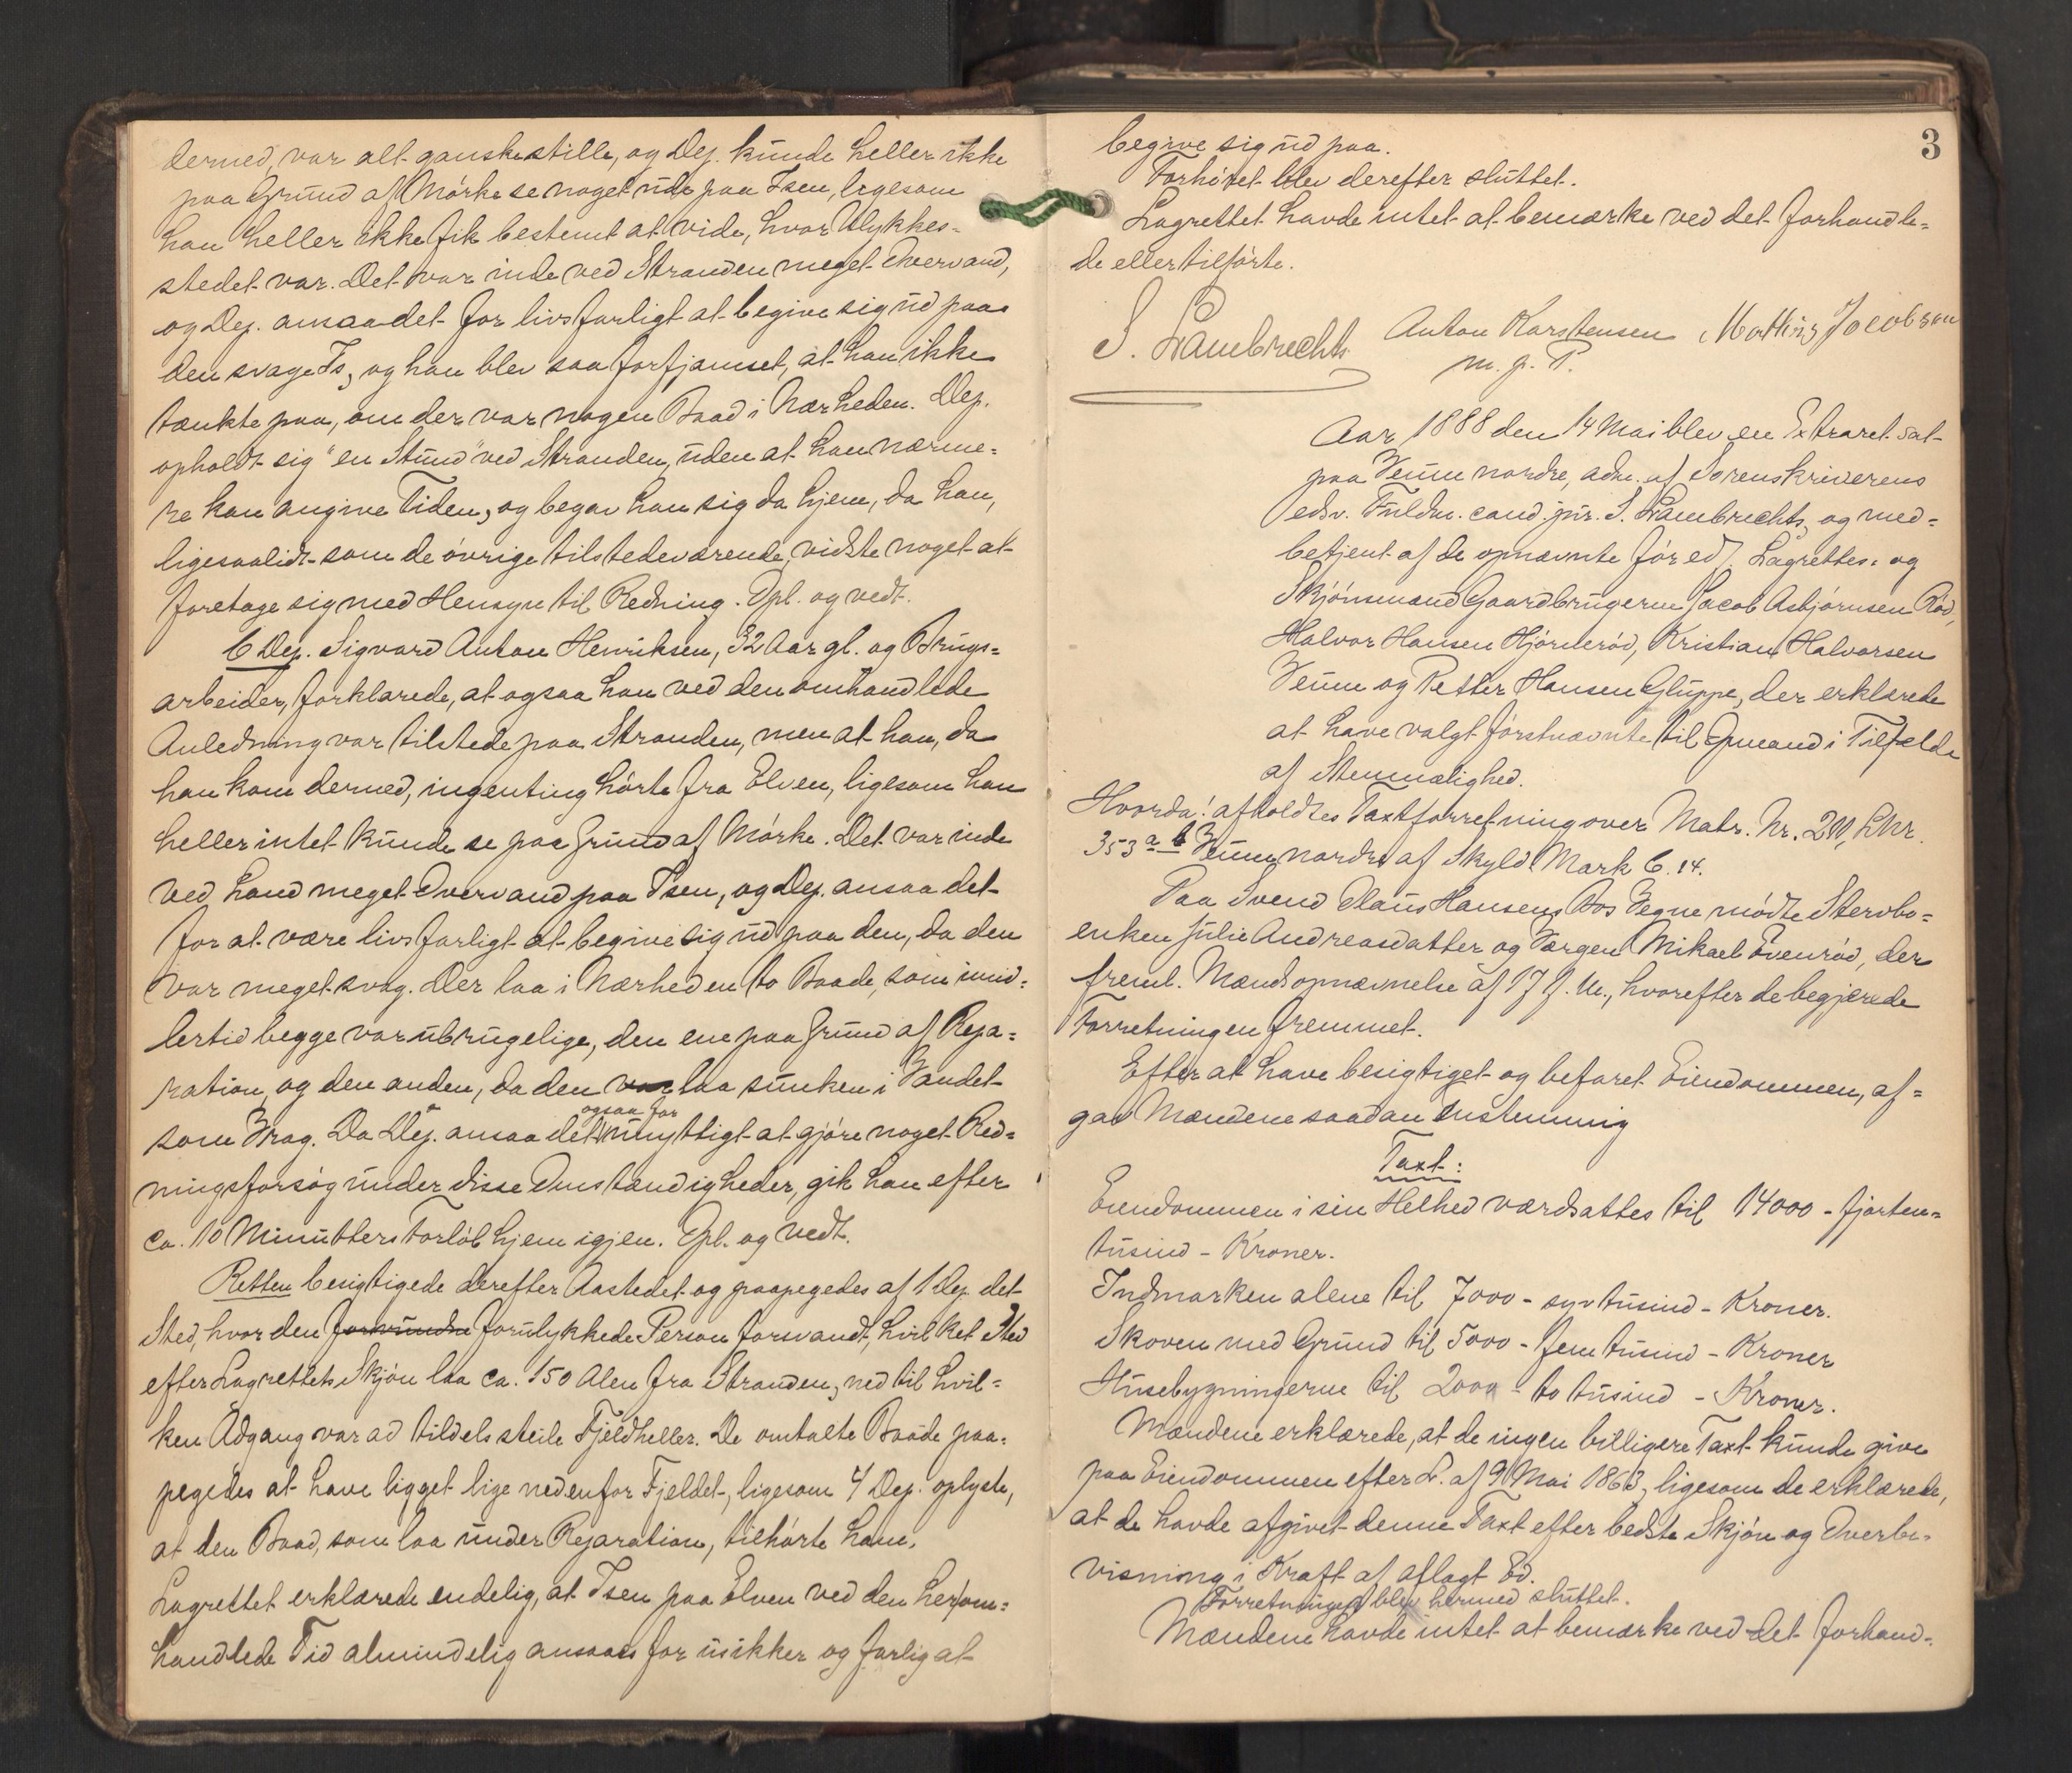 derned, var alt ganske stille, og Dep. kunde heller ikke
paa Grund af Mörke se noget ude paa Isen, ligesom
han heller ikke fik bestemt at vide, hvor Ulykkes-
stedet var. Det var inde ved Stranden meget Overvand,
og Dep. ansaa det for livsfarligt at begive sig ud paa
den svage Is, og han blev saa forfjamset, at han ikke
tænkte paa, om der var nogen Baad i Nærheden. Dep.
opholdt sig "en Stund" ved Stranden, uden at han nærme-
re kan angive Tiden, og begav han sig da hjem, da han,
ligesaalidt som de övrige tilstedeværende, vidste noget at
foretage sig med Hensyn til Redning. Opl. og vedt.
6 Dep. Sigvard Anton Henriksen, 32 Aar gl. og Brugs-
arbeider, forklarede, at ogsaa han ved den omhandlede
Anledning var tilstede paa Stranden, men at han, da
han kom derned, ingenting hörte fra Elven, ligesom han
heller intet kunde se paa Grund af Mörke. Det var inde
ved Land meget Overvand paa Isen, og Dep. ansaa det
for at være livsfarligt at begive sig ud paa den, da den
var meget svag. Der laa i Nærheden to Baade, som imid-
lertid begge var ubrugelige, den ene paa Grund af Repa-
ration, og den anden, da den var laa sunken i Vandet
som Vrag. Da Dep. ansaa det ogsaa for unyttigt at gjöre noget Red-
ningsforsög under disse Omstændigheder, gik han efter
ca. 10 Minutters Forlöb hjem igjen. Opl. og vedt.
Retten besigtigede derefter Aastedet og paapegedes af 1 Dep. det
Sted, hvor den forsvundne forulykkede Person forsvandt, hvilket Sted
efter Lagrettets Skjön laa ca. 150 Alen fra Stranden, ned til hvil-
ken Adgang var ad tildels steile Fjeldheller. De omtalte Baade paa-
pegedes at have ligget lige nedenfor Fjeldet, ligesom 4 Dep. oplyste,
at den Baad, som laa under Reparation, tilhörte ham.
Lagrettet erklærede endelig, at Isen paa Elven ved den herom-
handlede Tid almindelig ansaaes for usikker og farlig at
3
begive sig ud paa.
Forhöret blev derefter sluttet.
Lagrettet havde intet at bemærke ved det forhandle-
de eller tilförte.
S. Lambrechts Anton Karstensen Mathis Jocobsen
m. p. P.
Aar 1888 den 14 Mai blev en Extraret sat
paa Veum nordre, adm. af Sorenskriverens
edsv. Fuldm. cand. jur. S. Lambrechts, og med-
betjent af de opnævnte för ed. Lagrettes- og
Skjönsmænd Gaardbrugerne Jacob Asbjörnsen Röd,
Halvor Hansen Hjörneröd, Kristian Halvorsen
Veum og Petter Hansen Gluppe, der erklærede
at have valgt förstnævnte til Opmand i Tilfælde
af Stemmelighed.
Hvorda! afholdtes Taxtforretning over Matr. Nr. 211, Lnr.
353 a b Veum nordre af Skyld Mark 6.14.
Paa Svend Olaus Hansens Bos Vegne mödte Stervbo-
enken Julie Andreasdatter og Værgen Mikael Evenröd, der
freml. Mandsopnævnelse af 17 f. M., hvorefter de begjærede
Forretningen fremmet.
Efter at have besigtiget og befaret Eiendommen, af-
gav Mændene saadan enstemmig
Taxt:
Eiendommen i sin Helhed værdsattes til 14000 - fjorten-
tusind - Kroner.
Indmarken alene til 7000 - syv tusind - Kroner.
Skoven med Grund til 5000 - fem tusind - Kroner
Husebygningerne til 2000 - to tusind - Kroner.
Mændene erklærede, at de ingen billigere Taxt kunde give
paa Eiendommen efter L. af 9 Mai 1863, ligesom de erklærede,
at de havde afgivet denne Taxt efter bedste Skjön og Overbe-
visning i Kraft af aflagt Ed.
Forretningen blev hermed sluttet.
Mændene havde intet at bemærke ved det forhand-